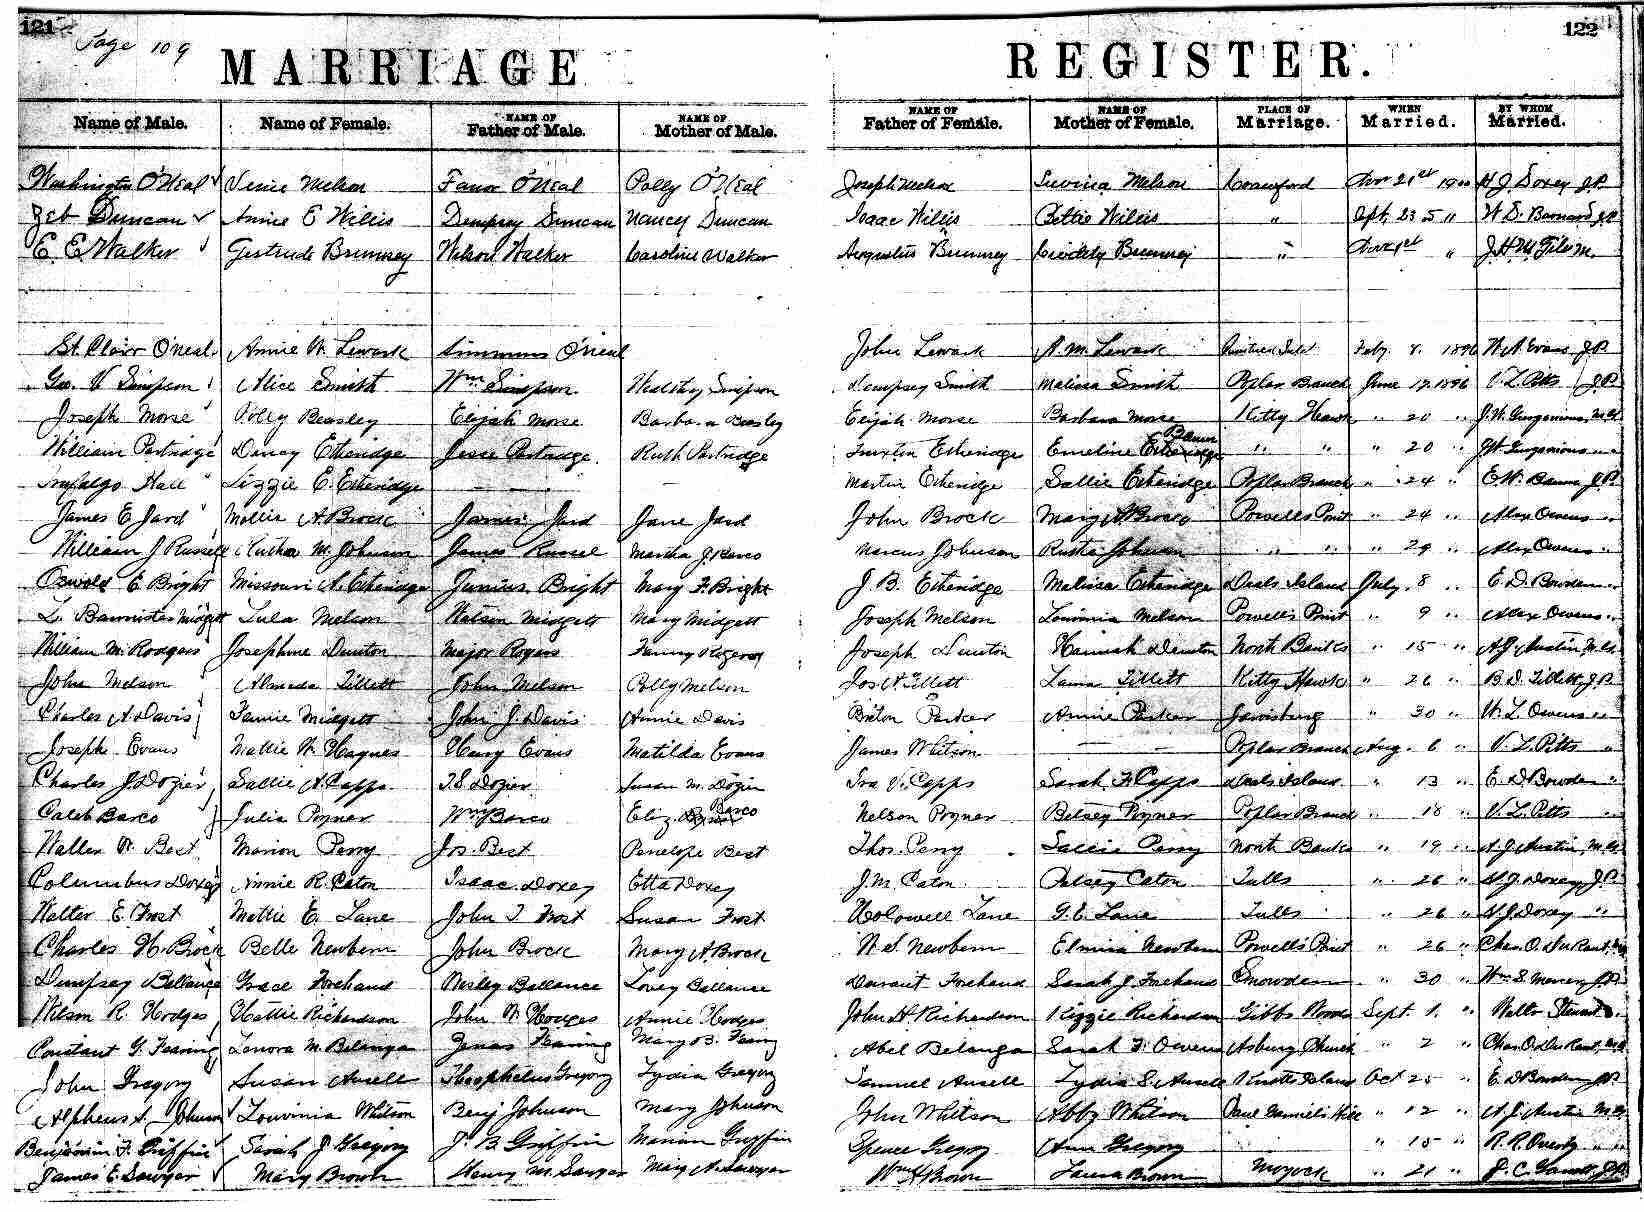 121
Page 109
122
MARRIAGE REGISTER.
Name of Male. Name of Female. NAME OF Father of Male. NAME OF Mother of Male. NAME OF Father of Female. NAME OF Mother of Female. PLACE OF Marriage. WHEN Married. BY WHOM Married.
Washington O'Neal Venie Melson O'Neal Polly O'Neal Joseph Melson Luvinia Melson Crawford Nov 21st 1900 H J Doxey J.P.
Zeb Duncan Annie E Willis Dempsey Duncan Nancy Duncan Isaac Willis Bettie Willis " Sept. 23 " W. D. Barnard J.P.
E. E. Walker Gertrude Brumsey Wilson Walker Caroline Walker Augustus Brumsey Brumsey " Nov 1st " J.H.M.
St. Clair O'neal Annie W. Lewark Simmons O'neal John Lewark A. M. Lewark Feby. 8. 1896 W. A. Evans J.P.
Geo. V Simpson Alice Smith Wm Simpson Simpson Dempsey Smith Melissa Smith Poplar Branch June 12 1896 V. L. Pitts J.P.
Joseph Morse Polly Beasley Elijah Morse Barbara Beasley Elijah Morse Barbara Morse Kitty Hawk " 20 "
William Partridge Dancy Etheridge Jesse Partridge Ruth Partridge Etheridge Emeline " " " 20 "
Hall Lizzie E. Etheridge — — Martin Etheridge Sallie Etheridge Poplar Branch " 24 " E. W. J.P.
James E Jard Mollie A. Brock James Jard Jane Jard John Brock Mary A Brock Powells Point " 24 " Alex Owens "
William J Russell M. Johnson James Russel Martha J. Marcus Johnson Johnson " " " 29 " Alex Owens "
Oswold E Bright Missouri A. Etheridge Junius Bright Mary F. Bright J. B. Etheridge Melissa Etheridge Deals Island July. 8 " E. D. Bowden "
L. Bannister Midgett Lula Melson Watson Midgett Mary Midgett Joseph Melson Louvinia Melson Powell's Point " 9 " Alex Owens "
William M. Rodgers Josephine Dunton Major Rogers Fanny Rogers Joseph Dunton Hannah Dunton North Banks " 15 " A. J. Austin, M.G.
John Melson Almeda Tillett John Melson Polly Melson Jos A Tillett Tillett Kitty Hawk " 26 " B. D. Tillett, J.P.
Charles A. Davis Fannie Midgett John J. Davis Annie Davis Parker Annie Parker Jarvisburg " 30 " W. L. Owens "
Joseph Evans Mattie W. Haynes Henry Evans Matilda Evans James Whitson — — Poplar Branch Aug. 6 " V. L. Pitts "
Charles J. Dozier Sallie A. Capps T. S Dozier Susan M. Dozier Ira V. Capps Sarah F. Capps Deals Island " 13 " E. D Bowden "
Caleb Barco Julia Poyner Wm Barco Eliz. Barco Nelson Poyner Betsey Poyner Poplar Branch " 18 " V. L. Pitts "
Walter W. Best Marion Perry Jos. Best Penelope Best Thos. Perry Sallie Perry North Banks " 19 " A. J. Austin, M.G.
Columbus Doxey Annie R. Caton Isaac Doxey Etta Doxey J. M. Caton Patsey Caton Tulls " 26 " H. J. Doxey J.P.
Walter E. Frost Mattie E. Lane John T. Frost Susan Frost Lane G. E. Lane Tulls " 26 " H. J. Doxey "
Charles H. Brock Belle Newbern John Brock Mary A. Brock W. S. Newbern Elmira Newbern Powell's Point " 26 " Chas. O. DuRant, M.G.
Dempsey Ballance Grace Forehand Wesley Ballance Lovey Ballance Forehand Sarah J Forehand Snowden " 30 " Wm S. J.P.
Wilson R. Hodges Hattie Richardson John W. Hodges Annie Hodges John H. Richardson Kizzie Richardson Gibbs Woods Sept. 1. " Walter
Constant G. Fearing Lenora M. Belanga Zenas Fearing Mary B. Abel Belanga Sarah F. Owens Asbury Church " 2 " Chas. O. DuRant, M.G.
John Gregory Susan Ansell Theophelus Gregory Lydia Gregory Samuel Ansell Lydia S. Ansell Knotts Island Oct 25 " E. D Bowden J.P.
Alpheus A. Johnson Louvinia Whitson Benj Johnson Mary Johnson John Whitson Abby Whitson " 12 " A. J. Austin M.G.
Benjamin F. Griffin Sarah J Gregory J. B. Griffin Marian Griffin Spence Gregory Ann Gregory " 15 " R. R. "
James E. Sawyer Mary Brown Henry M. Sawyer Mary A. Sawyer Wm H Brown Laura Brown Moyock " 21 " J. C. J.P.